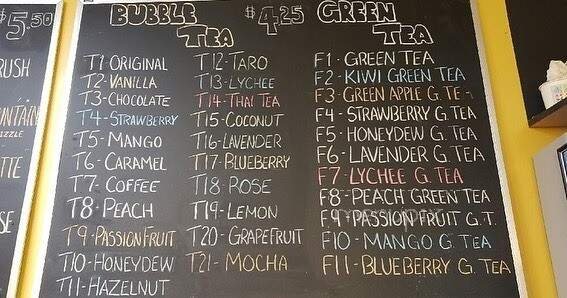 $5.50
RUSH
UNTAIN
ZZLE
TTE
SE
BUBBLE TEA
$4.25
T1-ORIGINAL
T2-VANILLA
T3-CHOCOLATE
T4-STRAWBERRY
T5-MANGO
T6-CARAMEL
T7-COFFEE
T8-PEACH
T9-PASSIONFRUIT
T10-HONEYDEW
T11-HAZELNUT
T12-TARO
T13-LYCHEE
T14-THAI TEA
T15-COCONUT
T16-LAVENDER
T17-BLUEBERRY
T18-ROSE
T19-LEMON
T20-GRAPEFRUIT
T21-MOCHA
GREEN TEA
F1-GREEN TEA
F2-KIWI GREEN TEA
F3-GREEN APPLE G. TEA
F4-STRAWBERRY G. TEA
F5-HONEYDEW G. TEA
F6-LAVENDER G. TEA
F7-LYCHEE G. TEA
F8-PEACH GREEN TEA
F9-PASSION FRUIT G.T.
F10-MANGO G. TEA
F11-BLUEBERRY G. TEA